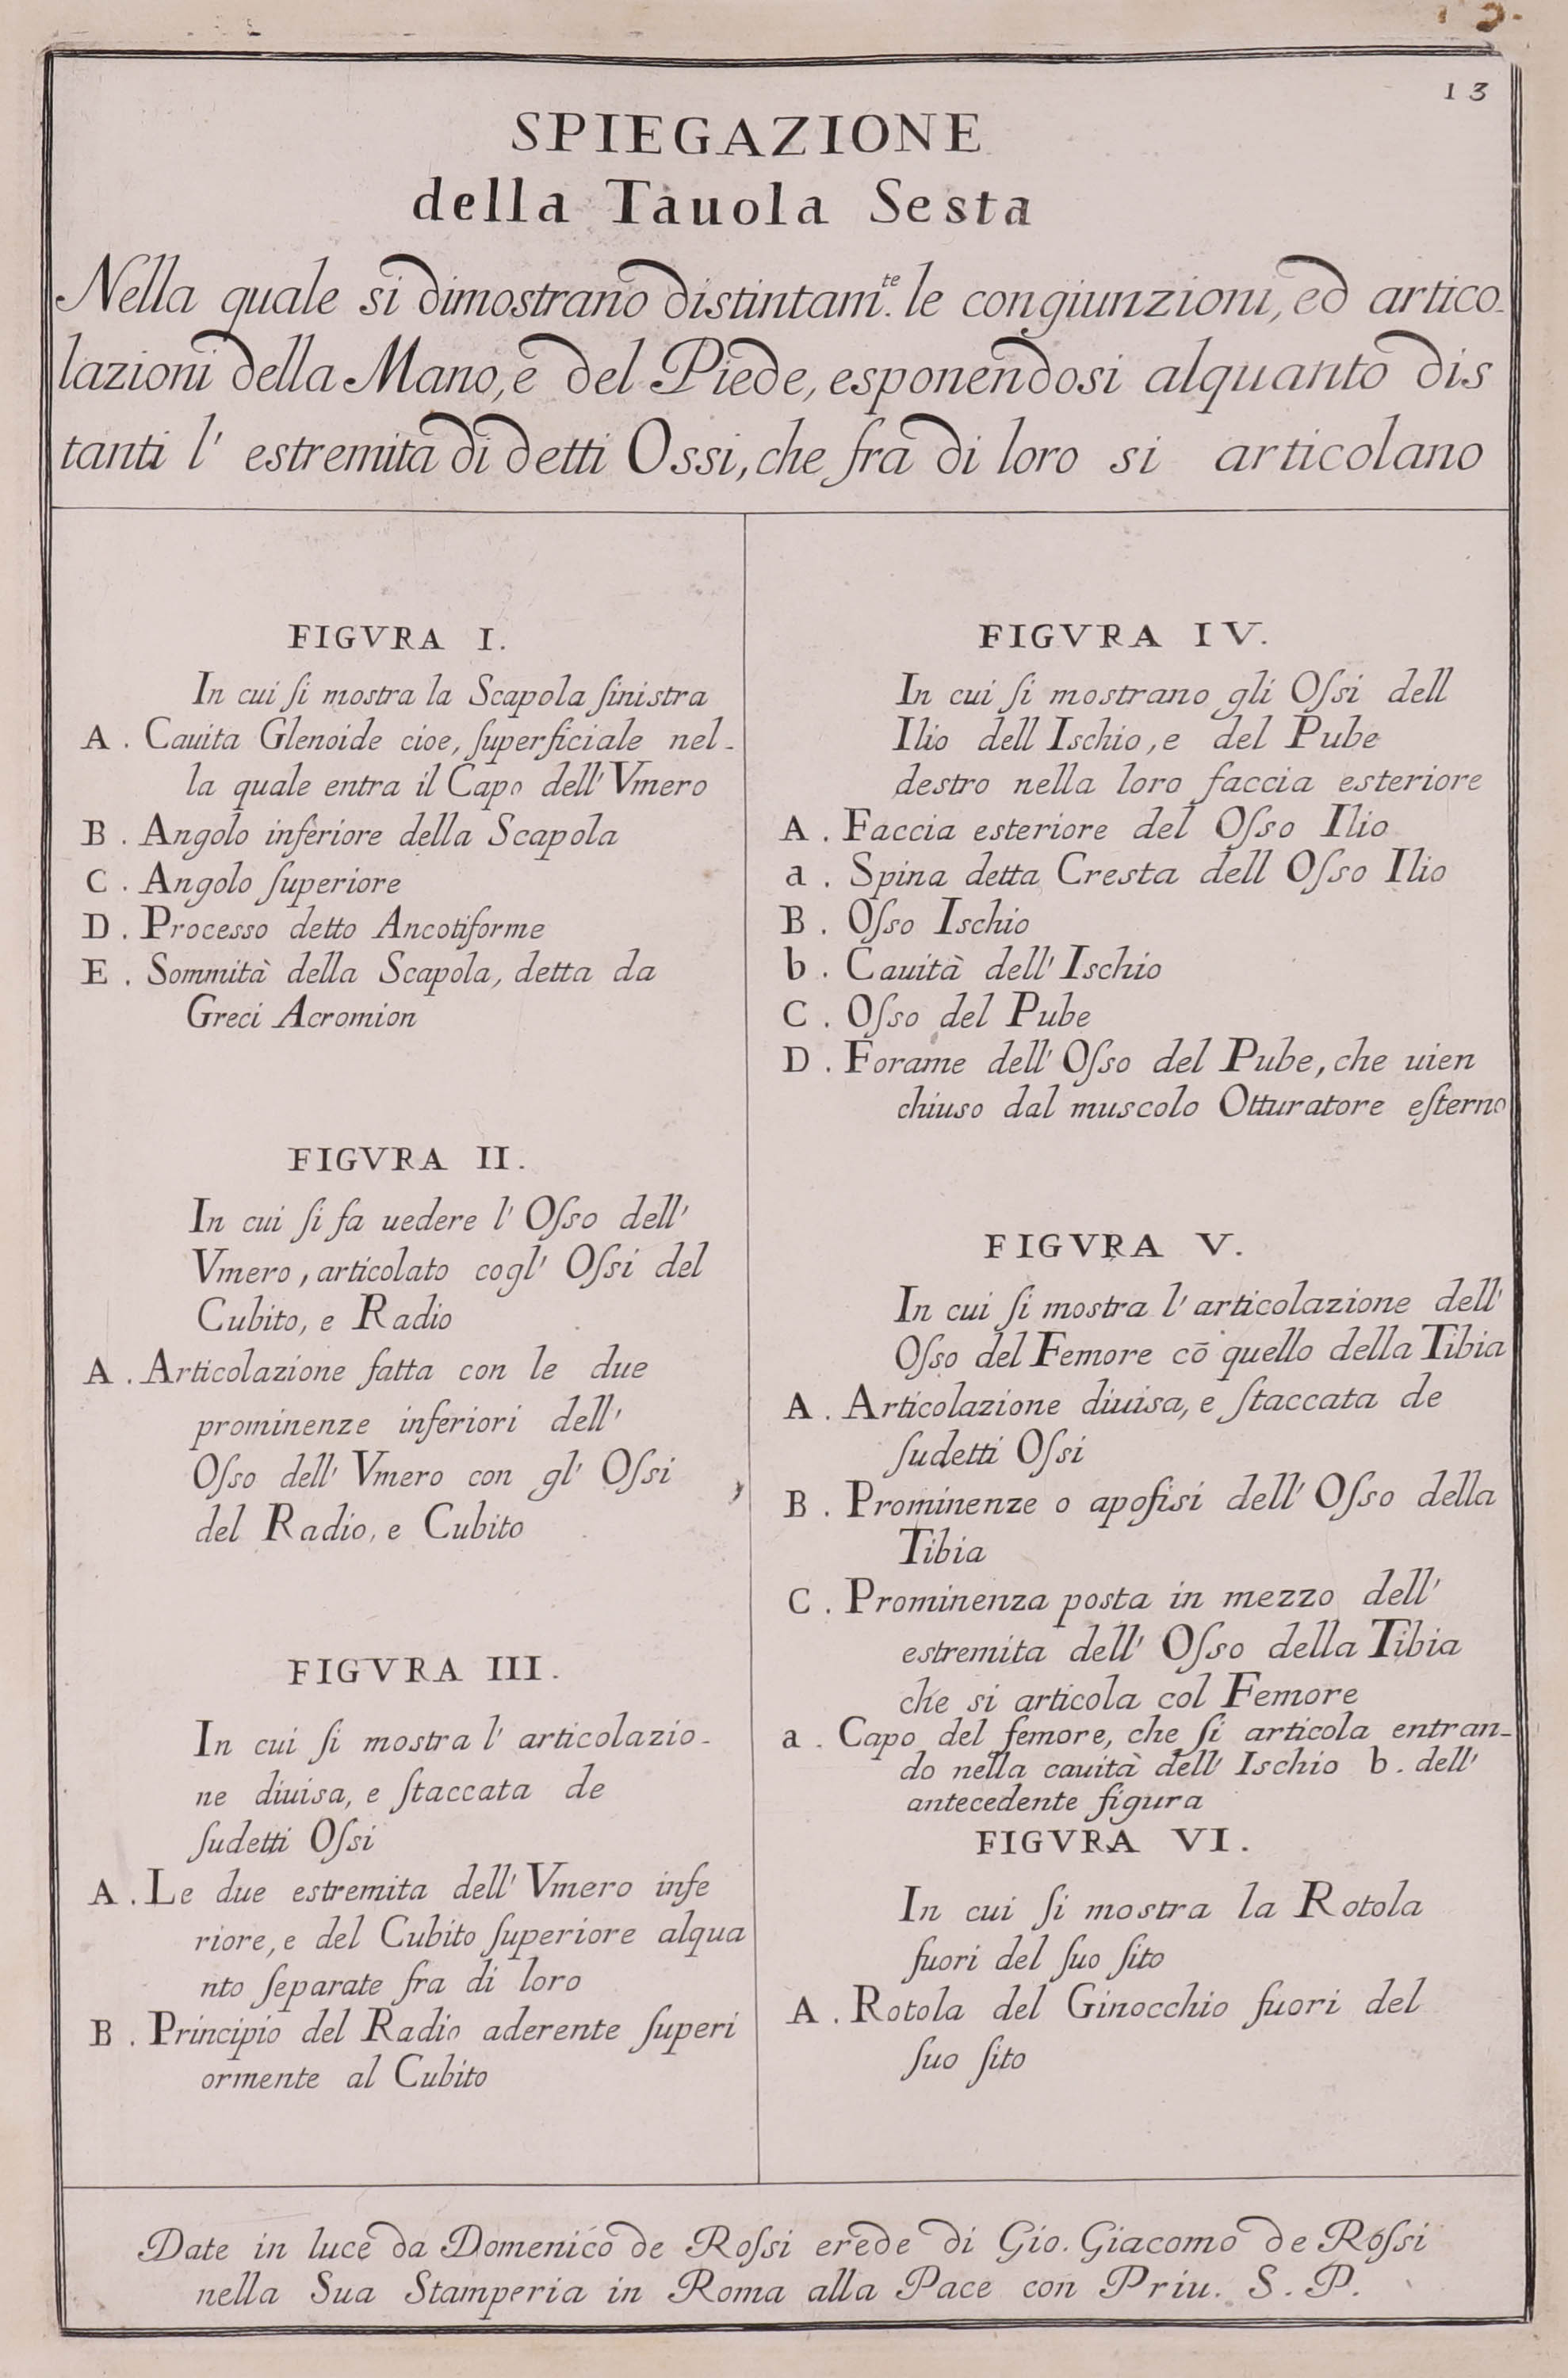 13
SPIEGAZIONE
della Tauola Sesta
Nella quale si dimostrano distintam.te le congiunzioni, ed artico-
lazioni della Mano, e del Piede, esponendosi alquanto dis
tanti l' estremita di detti Ossi, che fra di loro si articolano
FIGVRA I.
In cui ſi mostra la Scapola ſinistra
A . Cauita Glenoide cioe, ſuperficiale nel-
la quale entra il Capo dell' Vmero
B . Angolo inferiore della Scapola
C . Angolo ſuperiore
D . Processo detto Ancotiforme
E . Sommità della Scapola, detta da
Greci Acromion
FIGVRA II.
In cui ſi fa uedere l' Oſso dell'
Vmero, articolato cogl' Oſsi del
Cubito, e Radio
A . Articolazione fatta con le due
prominenze inferiori dell'
Oſso dell' Vmero con gl' Oſsi
del Radio, e Cubito
FIGVRA III.
In cui ſi mostra l' articolazio-
ne diuisa, e ſtaccata de
ſudetti Oſsi
A . Le due estremita dell' Vmero infe
riore, e del Cubito ſuperiore alqua
nto ſeparate fra di loro
B . Principio del Radio aderente ſuperi
ormente al Cubito
FIGVRA IV.
In cui ſi mostrano gli Oſsi dell
Ilio dell Ischio, e del Pube
destro nella loro faccia esteriore
A . Faccia esteriore del Oſso Ilio
a . Spina detta Cresta dell Oſso Ilio
B . Oſso Ischio
b . Cauità dell' Ischio
C . Oſso del Pube
D . Forame dell' Oſso del Pube, che uien
chiuso dal muscolo Otturatore eſterno
FIGVRA V.
In cui ſi mostra l' articolazione dell'
Oſso del Femore cō quello della Tibia
A . Articolazione diuisa, e ſtaccata de
ſudetti Oſsi
B . Prominenze o apofisi dell' Oſso della
Tibia
C . Prominenza posta in mezzo dell'
estremita dell' Oſso della Tibia
che si articola col Femore
a . Capo del femore, che ſi articola entran-
do nella cauità dell' Ischio b . dell'
antecedente figura
FIGVRA VI.
In cui ſi mostra la Rotola
fuori del ſuo ſito
A . Rotola del Ginocchio fuori del
ſuo ſito
Date in luce da Domenico de Roſsi erede di Gio. Giacomo de Roſsi
nella Sua Stamperia in Roma alla Pace con Priu. S. P.